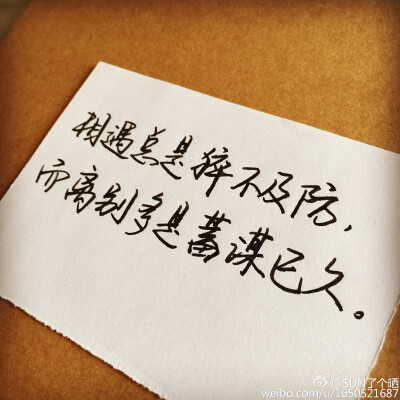 相遇总是猝不及防，
而离别多是蓄谋已久。
@SUN了个晒
weibo.com/u/1650521687